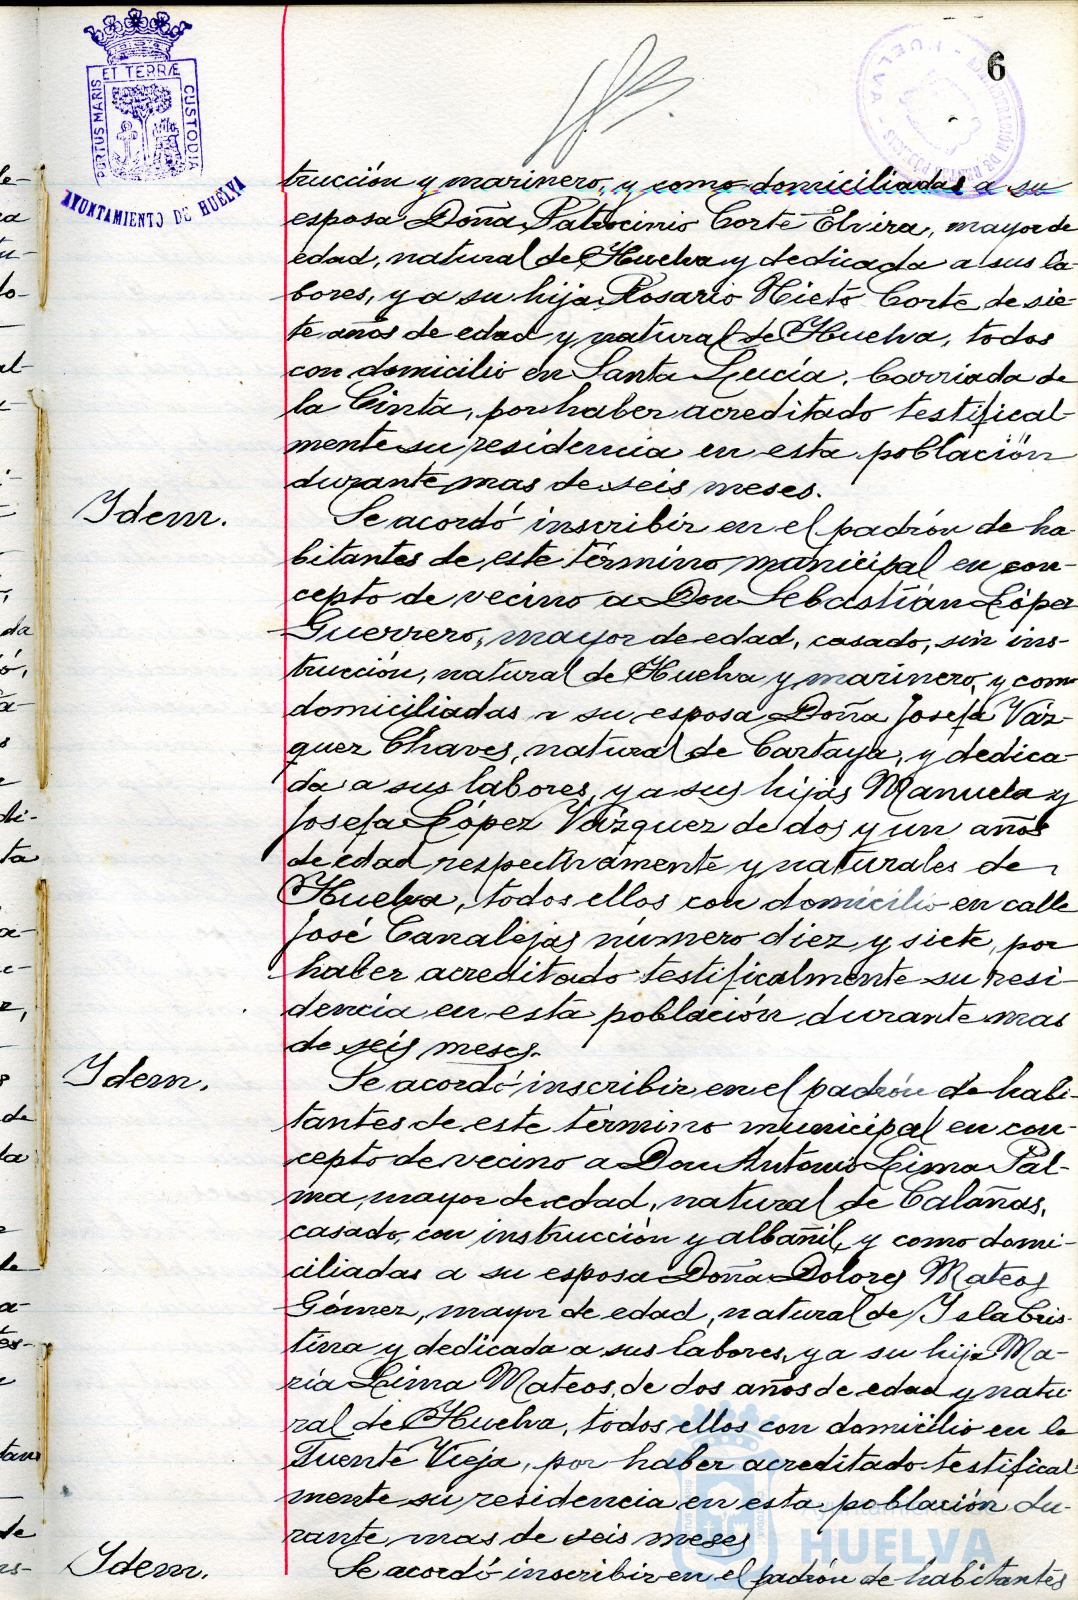 6
PORTUS MARIS ET TERRÆ CUSTODIA
AYUNTAMIENTO DE HUELVA
trucción y marinero, y como domiciliadas a su
esposa Doña Patrocinio Corte Elvira, mayor de
edad, natural de Huelva y dedicada a sus la-
bores, y a su hija Rosario Nieto Corte, de sie-
te años de edad y natural de Huelva, todos
con domicilio en Santa Lucía, Barriada de
la Cinta, por haber acreditado testifical-
mente su residencia en esta población
durante mas de seis meses.
Ydem.
Se acordó inscribir en el padrón de ha-
bitantes de este término municipal en con-
cepto de vecino a Don Sebastián López
Guerrero, mayor de edad, casado, sin ins-
trucción, natural de Huelva y marinero, y como
domiciliadas a su esposa Doña Josefa Váz-
quez Chaves, natural de Cartaya, y dedica-
da a sus labores, y a sus hijas Manuela y
Josefa López Vázquez de dos y un años
de edad respectivamente y naturales de
Huelva, todos ellos con domicilio en calle
José Canalejas número diez y siete, por
haber acreditado testificalmente su resi-
dencia en esta población durante mas
de seis meses.
Ydem.
Se acordó inscribir en el padrón de habi-
tantes de este término municipal en con-
cepto de vecino a Don Antonio Lima Pal-
ma, mayor de edad, natural de Calañas,
casado, con instrucción y albañil, y como domi-
ciliadas a su esposa Doña Dolores Mateos
Gómez, mayor de edad, natural de Ysla Cris-
tina y dedicada a sus labores, y a su hija Ma-
ría Lima Mateos, de dos años de edad y natu-
ral de Huelva, todos ellos con domicilio en la
Fuente Vieja, por haber acreditado testifical-
mente su residencia en esta población du-
rante mas de seis meses
Ydem.
Se acordó inscribir en el padrón de habitantes
Ayuntamiento de
HUELVA